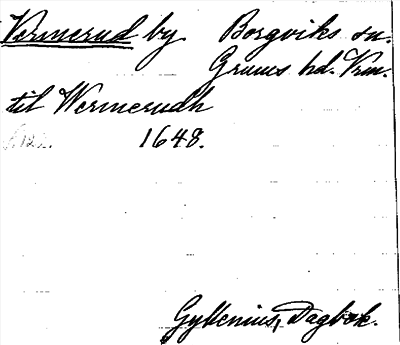 Vermerud by Borgviks sn.
Grums hd. Vrm.
til Wermerudh
1648.
Gyllenius, Dagbok.